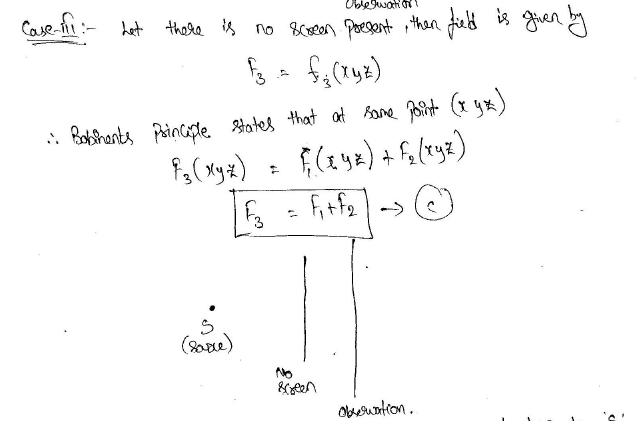 Observation
Case-iii :- Let there is no screen present, then field is given by
F3 = f3(xyz)
∴ Babinents principle states that at same point (xyz)
F3(xyz) = F1(xyz) + F2(xyz)
F3 = F1+F2 → C
S
(source)
No
screen
Observation.